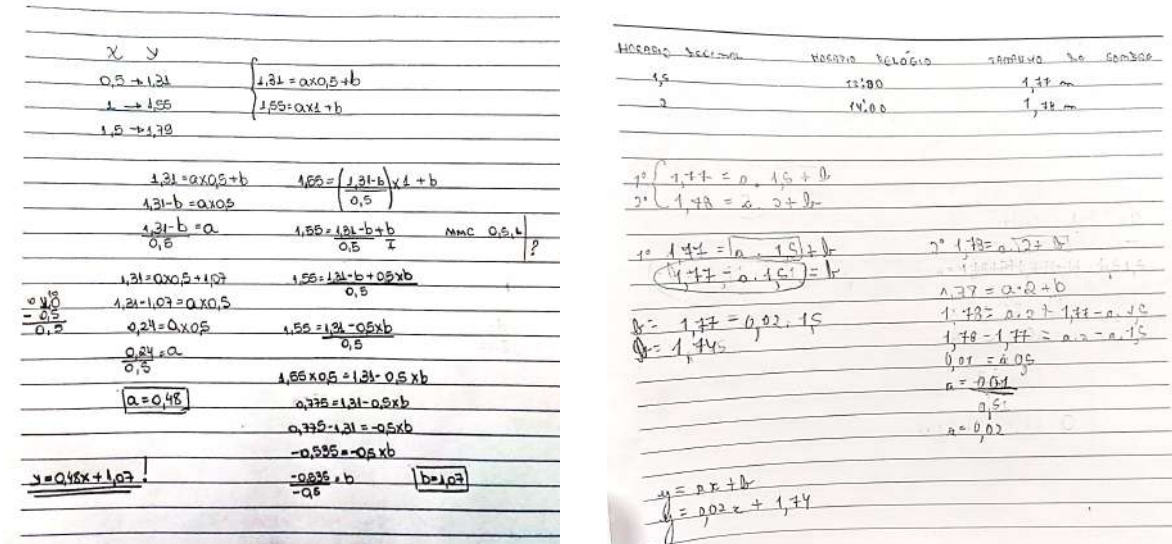 X y
0,5 → 1,31
1 → 1,55
1,5 → 1,79
1,31 = ax0,5+b
1,55 = ax1+b
1,31 = ax0,5+b
1,31-b = ax0,5
1,31-b = a
0,5
1,31 = ax0,5+1,07
1,31-1,07 = ax0,5
0,24 = ax0,5
0,24 = a
0,5
a = 0,48
y = 0,48x + 1,07!
- 0,5
0,5
1,55 = (1,31-b) x1 + b
0,5
1,55 = 1,31-b + b
0,5 1
MMC 0,5,1
?
1,55 = 1,31-b+0,5xb
0,5
1,55 = 1,31-0,5xb
0,5
1,55x0,5 = 1,31-0,5xb
0,775 = 1,31-0,5xb
0,775-1,31 = -0,5xb
-0,535 = -0,5xb
-0,535 = b
-0,5
b=1,07
HORÁRIO DECIMAL HORÁRIO RELÓGIO TAMANHO DO SOMBRA
1,5 13:30 1,77 m
2 14:00 1,78 m
1º 1,77 = a . 1,5 + b
2º 1,78 = a . 2 + b
1º 1,77 = a . 1,5 + b
1,77 - a . 1,5 = b
b = 1,77 - 0,02 . 1,5
b = 1,745
2º 1,78 = a . 2 + b
1,78 = a . 2 + b
1,78 = a . 2 + 1,77 - a . 1,5
1,78 - 1,77 = a . 2 - a . 1,5
0,01 = a 0,5
a = 0,01
0,5
a = 0,02
y = ax + b
y = 0,02x + 1,74